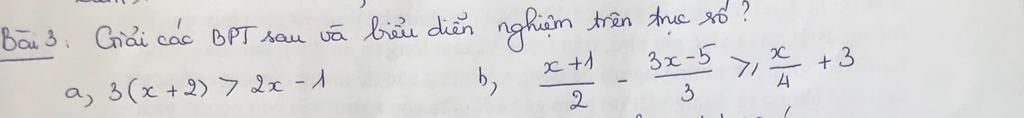 Bài 3: Giải các BPT sau và biểu diễn nghiệm trên trục số?
a, 3(x+2) > 2x - 1 b, (x+1)/2 - (3x-5)/3 ≥ x/4 + 3